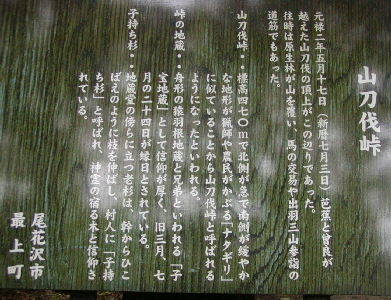 山刀伐峠
元禄二年五月十七日(新暦七月三日)芭蕉と曽良が
越えた山刀伐の頂上がこの辺りであった。
往時は原生林が山を覆い、馬の交易や出羽三山参詣の
道筋でもあった。
山刀伐峠・・標高四七〇mで北側が急で南側が緩やか
な地形が猟師や農民がかぶる「ナタギリ」
に似ていることから山刀伐峠と呼ばれる
ようになったといわれる。
峠の地蔵・・舟形の猿羽根地蔵と兄弟といわれる「子
宝地蔵」として信仰が厚く、旧三月、七
月の二十四日が縁日とされている。
子持ち杉・・地蔵堂の傍らに立つ老杉は、幹からひこ
ばえのように枝を伸ばし、村人に「子持
ち杉」と呼ばれ、神霊の宿る木と信仰さ
れている。
尾花沢市
最上町